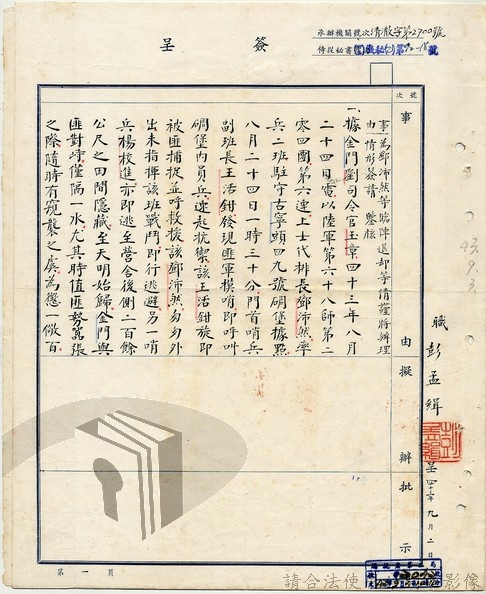 承辦機關號次清澈字第2900號
侍從秘書
號
簽呈
號次
事由擬辦批示
事由：為鄧沛然等臨陣退却等情謹將辦理
情形簽請 鑒核
一、據金門劉司令官玉章四十三年八月
二十四日電以陸軍第六十八師第二
零四團第六連上士代排長鄧沛然率
兵二班駐守古寧頭四九號碉堡據點
八月二十四日一時三十分門首哨兵
副班長王活鉗發現匪軍摸哨即呼叫
碉堡內員兵速起抗禦該王活鉗旋即
被匪捕捉並呼救援該鄧沛然匆匆外
出未指揮該班戰鬥即行逃避另一哨
兵楊校進亦即逃至營舍後側二百餘
公尺之田間隱藏至天明始歸金門與
匪對峙僅隔一水尤其時值匪勢囂張
之際隨時有窺襲之虞為懲一儆百
職彭孟緝
呈 四十三年九月二日
43.9.3.
第一頁
請合法使 影像